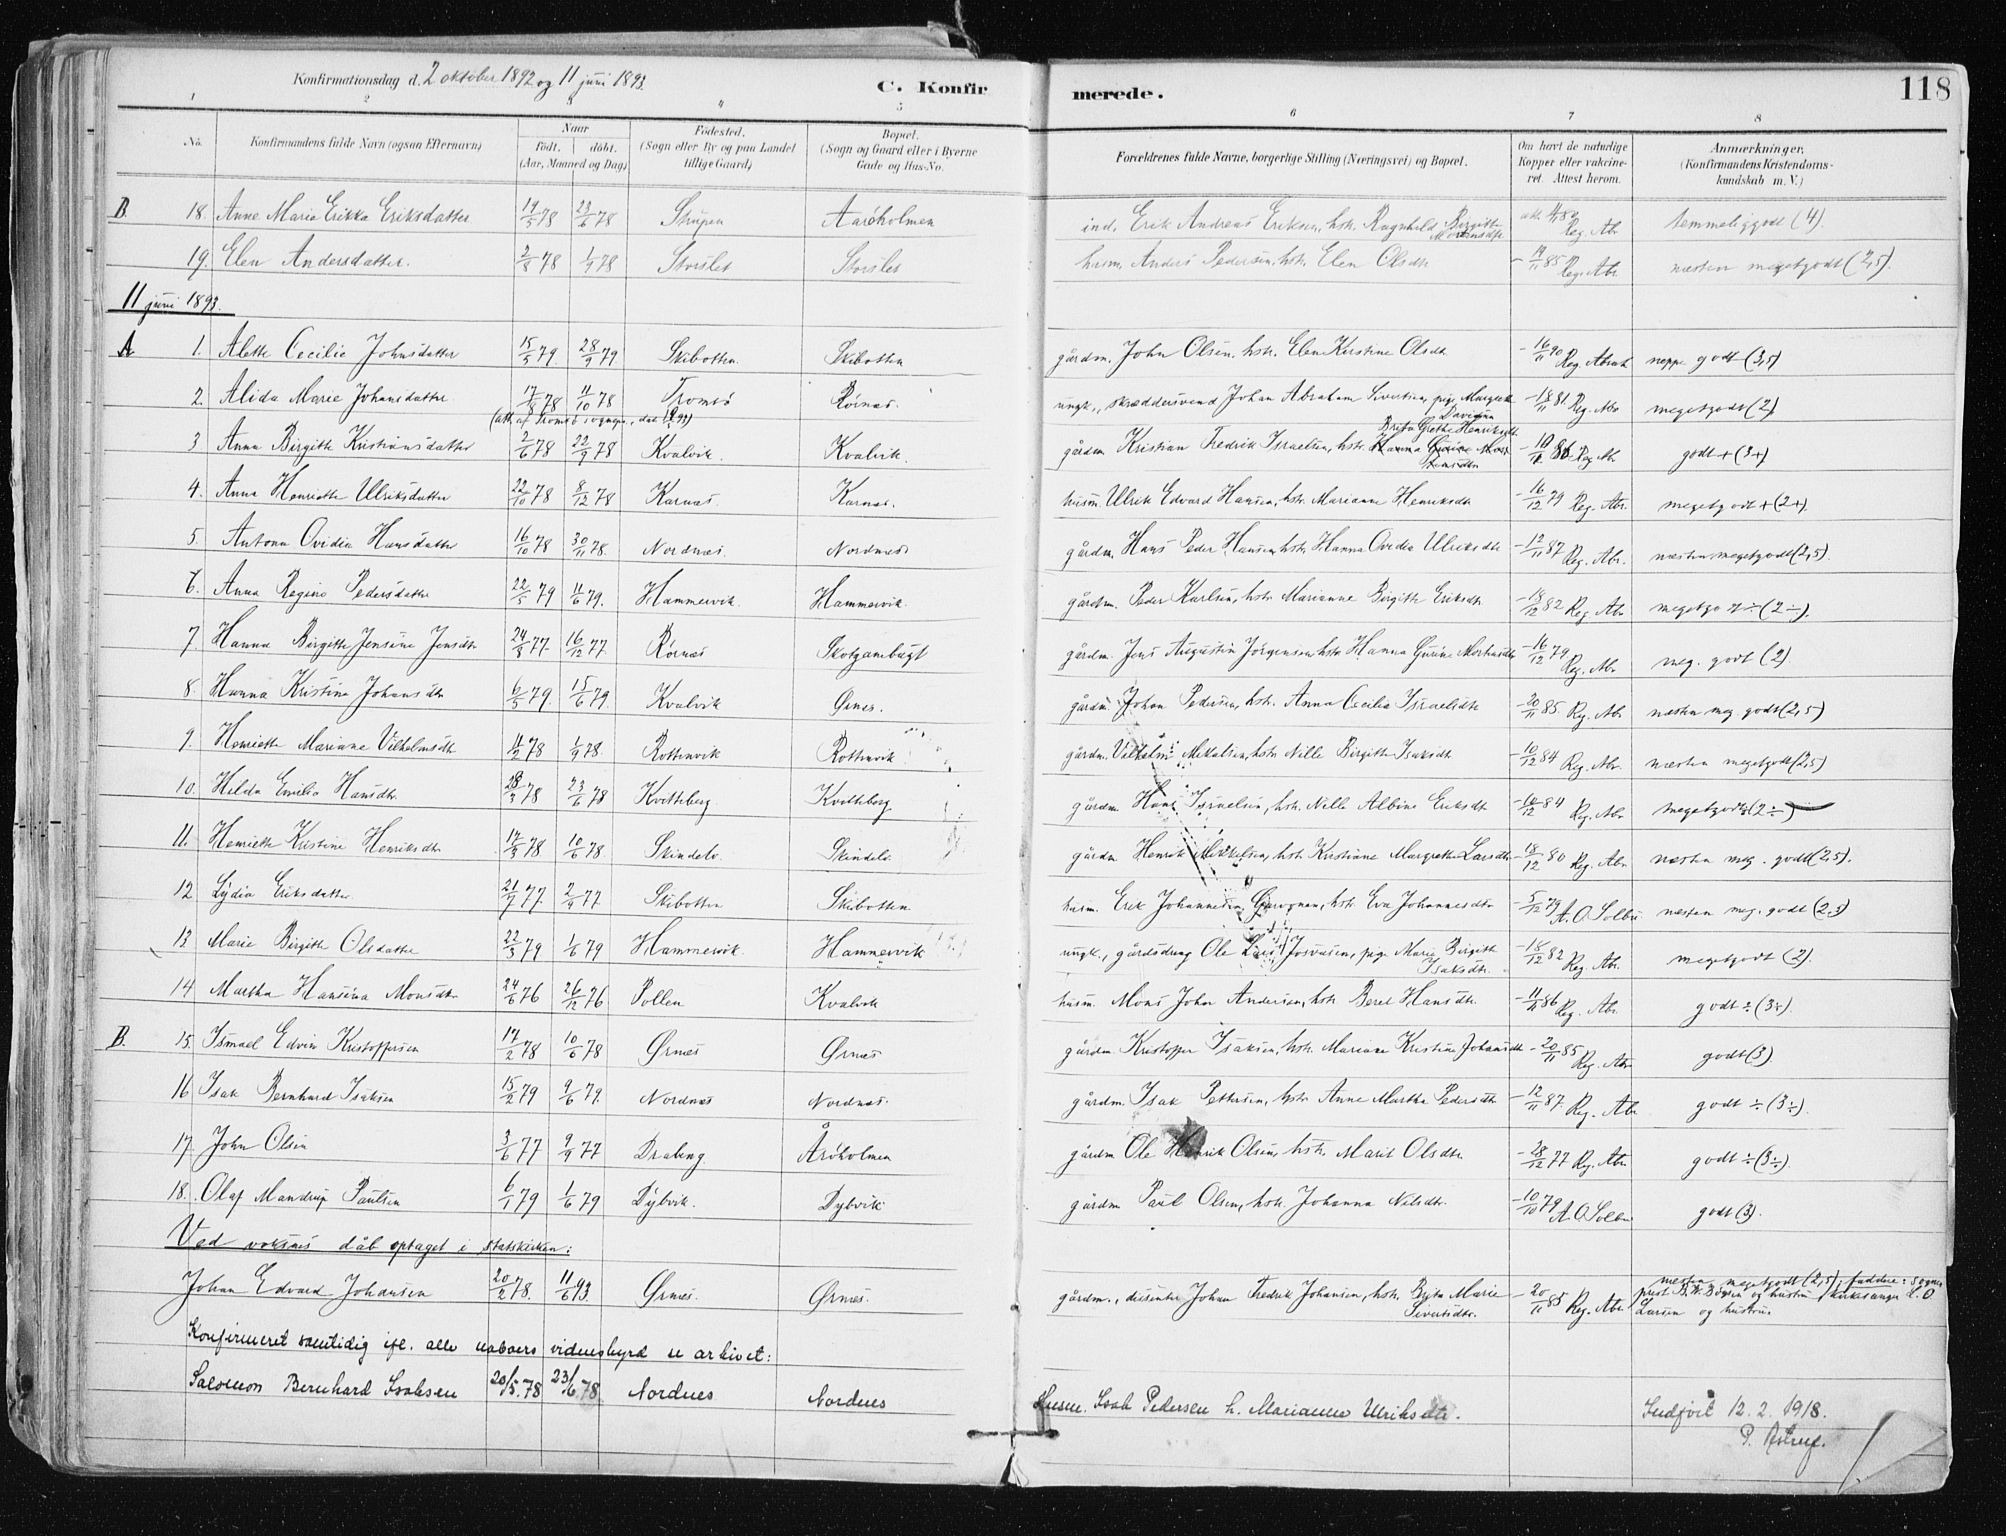 Konfirmationsdag d. 2 oktober 1892 og 11 juni 1893.
C. Konfirmerede.
118
1 2 3 4 5 6 7 8
No. Konfirmandens fulde Navn (ogsaa Efternavn) Naar født. døbt. (Aar, Maaned og Dag) Fødested. (Sogn eller By og paa Landet tillige Gaard) Bopæl. (Sogn og Gaard eller i Byerne Gade og Hus-No. Forældrenes fulde Navne, borgerlige Stilling (Næringsvei) og Bopæl. Om havt de naturlige Kopper eller vakcineret. Attest herom. Anmærkninger, (Konfirmandens Kristendomskundskab m. V.)
B. 18. Anne Marie Erikka Eriksdatter 19/5 78 23/6 78 Strupen Aarøholmen ind. Erik Andreas Eriksen, hstr. Ragnhild Birgitte Mortensdtr Reg. Abr temmeliggodt (4).
19. Elen Andersdatter. 2/8 78 1/9 78 Storslet Storslet husm. Anders Pedersen, hstr. Elen Olsdtr - 14/11 85 Reg. Abr. næsten megetgodt (2,5).
11 juni 1893.
A 1. Alette Cecilie Johnsdatter 15/5 79 28/9 79 Skibotten. Skibotten gårdm. John Olsen, hstr. Elen Kerstine Olsdtr - 16/11 90 Reg. Abrah neppe godt (3,5)
2. Alida Marie Johansdatter. 17/8 78 11/10 78 Tromsø Rörnæs. ungk., skræddersvend Johan Abraham Sivertsen, pige Margrete Davidsen - 18/11 81. Reg. Abr megetgodt (2)
3 Anna Birgitte Kristiansdatter 2/6 78 22/9 78 Kvalvik. Kvalvik. gårdm Kristian Fredrik Israelsen, hstr. Brita Grethe Henriksdt. Reg. Abr godt + (3+)
4. Anna Henriette Ulriksdatter 22/10 78 8/12 78 Karnæs. Karnæs. husm. Ulrik Edvard Hansen, hstr. Marianne Henriksdtr - 16/12 79 Reg. Abr. megetgodt + (2+).
5. Antona Ovidia Hansdatter 16/10 78 30/11 78. Nordnæs. Nordnæs gårdm. Hans Peder Hansen, hstr. Hanna Ovidia Ulriksdtr - 12/11 87 Reg. Abr. næsten megetgodt (2,5).
6. Anna Regine Pedersdatter 22/5 79 11/6 79. Hammervik. Hammervik. gårdm. Peder Karlsen, hstr. Marianne Birgitte Eriksdtr. - 18/12 82 Reg. Abr megetgodt ÷ (2÷).
7. Hanna Birgitte Jensine Jensdtr 24/8 77. 16/12 77. Rörnæs Skotgambugt gårdm. Jens Augustin Jörgensen, hstr. Hanna Gurine Mortensdtr - 16/12 79 Reg. Abr. meg. godt (2)
8. Hanna Kristine Johansdtr 6/5 79. 15/6 79. Kvalvik Ørnes. gårdm. Johan Pedersen, hstr. Anna Cecilie Israelsdtr - 20/11 85. Reg. Abr næsten meg godt (2,5)
9. Henriette Mariane Vilhelmsdtr 11/2 78 1/9 78. Rottenvik Rottenvik gårdm. Vilhelm Mikalsen, hstr Nille Birgitte Isaksdtr - 10/12 84 Reg. Abr. næsten megetgodt (2,5)
10. Hilda Emilie Hansdtr. 28/3 78 23/6 78 Kvitteberg. Kvitteberg gårdm. Hans Israelsen, hstr. Nille Albine Eriksdtr - 10/12 84 Reg. Abr megetgodt (2÷)
11. Henriette Kristine Henriksdtr 17/3 78 10/6 78 Skindelv. Skindelv. gårdm. Henrik Mikkelsen, hstr Kristiane Margrethe Larsdtr - 18/12 80 Reg. Abr næsten meg. godt (2,5).
12. Lydia Eriksdatter 21/7 77. 2/9 77 Skibotten Skibotten husm. Erik Johannesen, hstr. Eva Johannesdtr - 5/12 79 A. O. Solbu næsten meg. godt (2,5)
13 Marie Birgitte Olsdatter 22/3 79 1/6 79 Hammervik. Hammervik ungk., gårdsdreng Ole Josvasen, pige Marie Birgitte Isaksdtr. - 18/12 82 Reg. Abr. megetgodt (2).
14 Martha Hansina Monsdtr 24/6 76 26/12 76 Pollen Kvalvik husm. Mons John Andersen, hstr Beret Hansdtr. Reg. Abr. godt ÷ (3÷)
B. 15. Ismael Edvin Kristoffersen 17/2 78 10/6 78 Ørnæs Ørnæs gårdm Kristoffer Isaksen, hstr. Mariane Kristine Johansdtr - 20/11 85 Reg. Abr godt (3)
16 Isak Bernhard Isaksen 15/2 79 9/6 79. Nordnæs Nordnæs. gårdm. Isak Pettersen, hstr Anne Martha Pedersdtr - 12/11 87. Reg. Abr godt ÷ (3÷).
17. John Olsen 3/6 77 9/9 77 Årøholmen gårdm Ole Henrik Olsen, hstr. Marit Olsdtr. - 28/12 77 Reg. Abr godt ÷ (3÷).
18. Olaf Mandrup Paulsen 6/1 79 1/6 79 Dybvik. Dybvik gårdm Paul Olsen, hstr. Johanna Nilsdtr. - 10/10 79 A. O Solbu godt (3).
Ved voksnes dåb optaget i statskirken:
Johan Edvard Johansen 20/2 78. 11/6 93. Ørnæs. Ørnæs. gårdm., dissenter Johan Fredrik Johansen, hstr. Brita Marie Sivertsdtr. - 20/11 85 Reg. Abr næsten megetgodt (2,5); faddere: sogneprest og hustru, kirkesanger L. O Larsen og hustru.
Konfirmeret samtidig ifl. alle naboers vidnesbyrd se arkivet:
Salomon Bernhard Isaksen 20/5. 78 23/6 78 Nordnes Nordnes Husm. Isak Pedersen h. Marianne Ulriksdtr. Indført 12. 2. 1918.
P. Astrup.